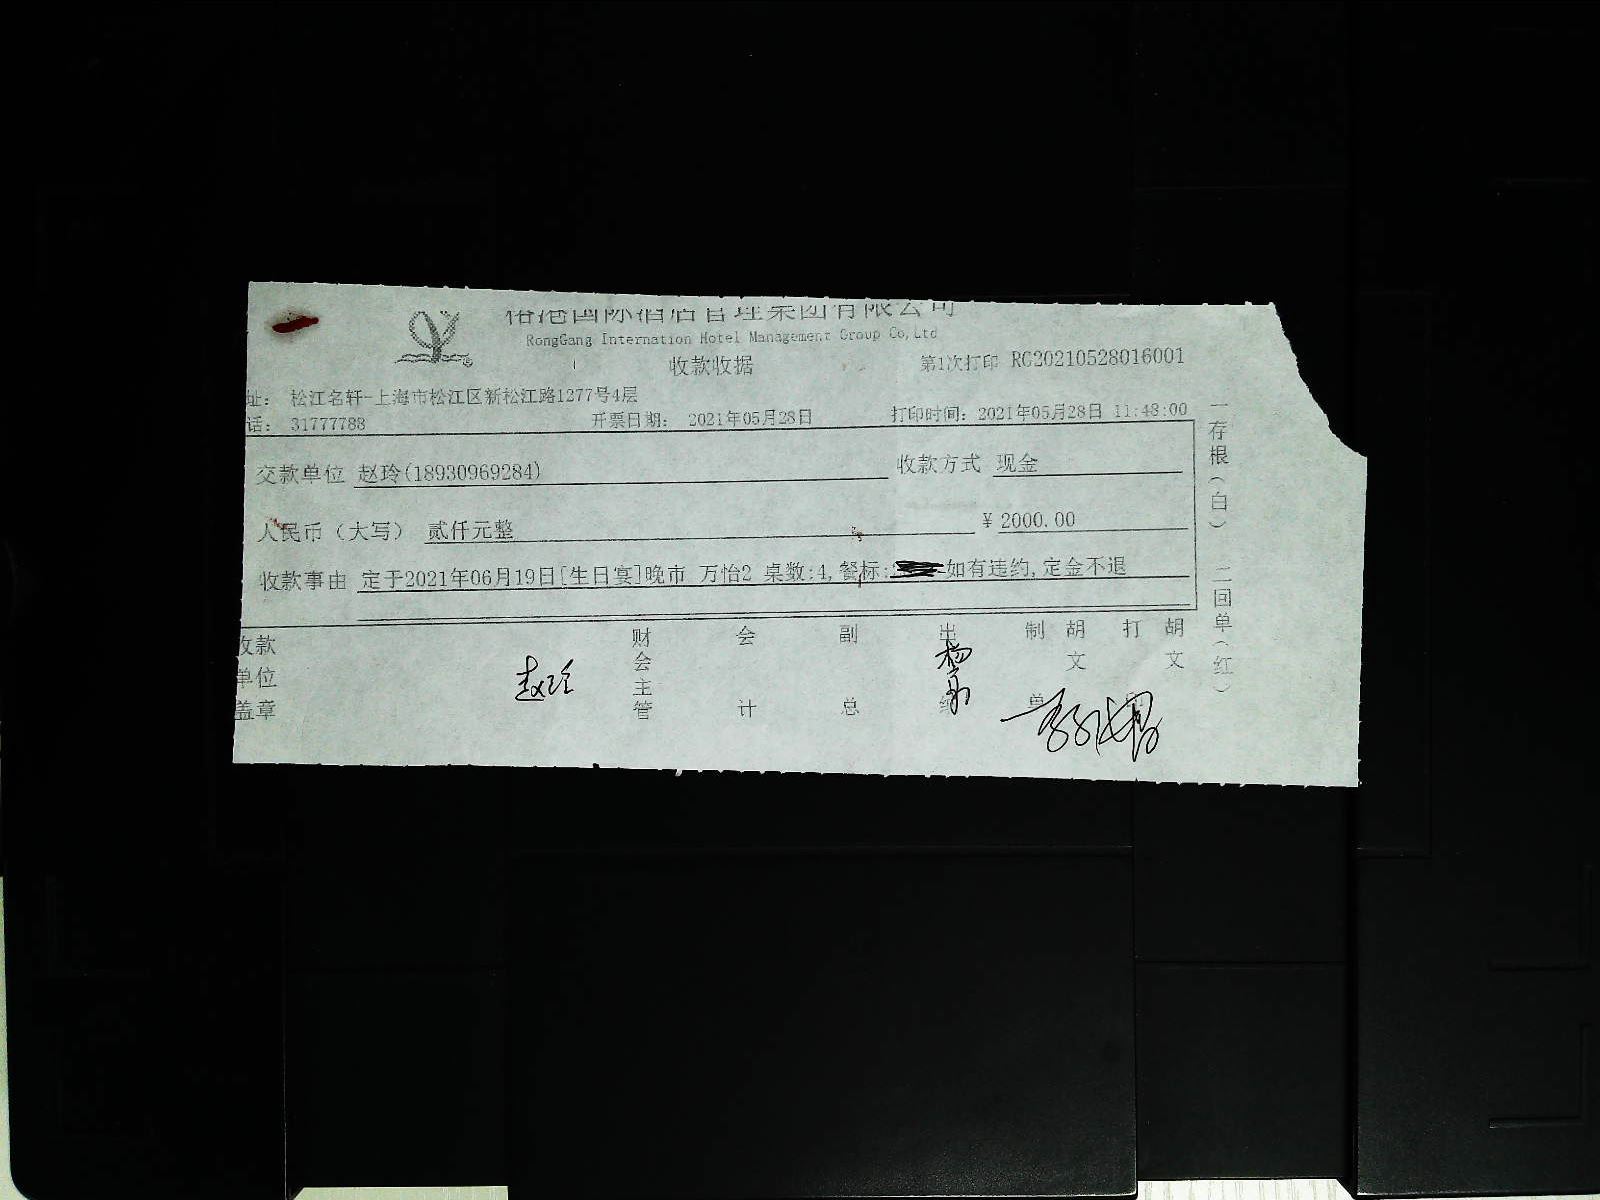 国际酒店管理集团有限公司
RongGang Internation Hotel Management Group Co,Ltd
收款收据
第1次打印 RC20210528016001
址： 松江名轩-上海市松江区新松江路1277号4层
话： 31777788 开票日期： 2021年05月28日 打印时间：2021年05月28日 11:48:00
交款单位 赵玲(18930969284) 收款方式 现金
人民币（大写） 贰仟元整 ￥2000.00
收款事由 定于2021年06月19日[生日宴]晚市 万怡2 桌数:4,餐标: 如有违约,定金不退
收款单位盖章
赵玲
财会主管
会计
副总
出纳
制单
胡文
打印
胡文
一存根(白) 二回单(红)